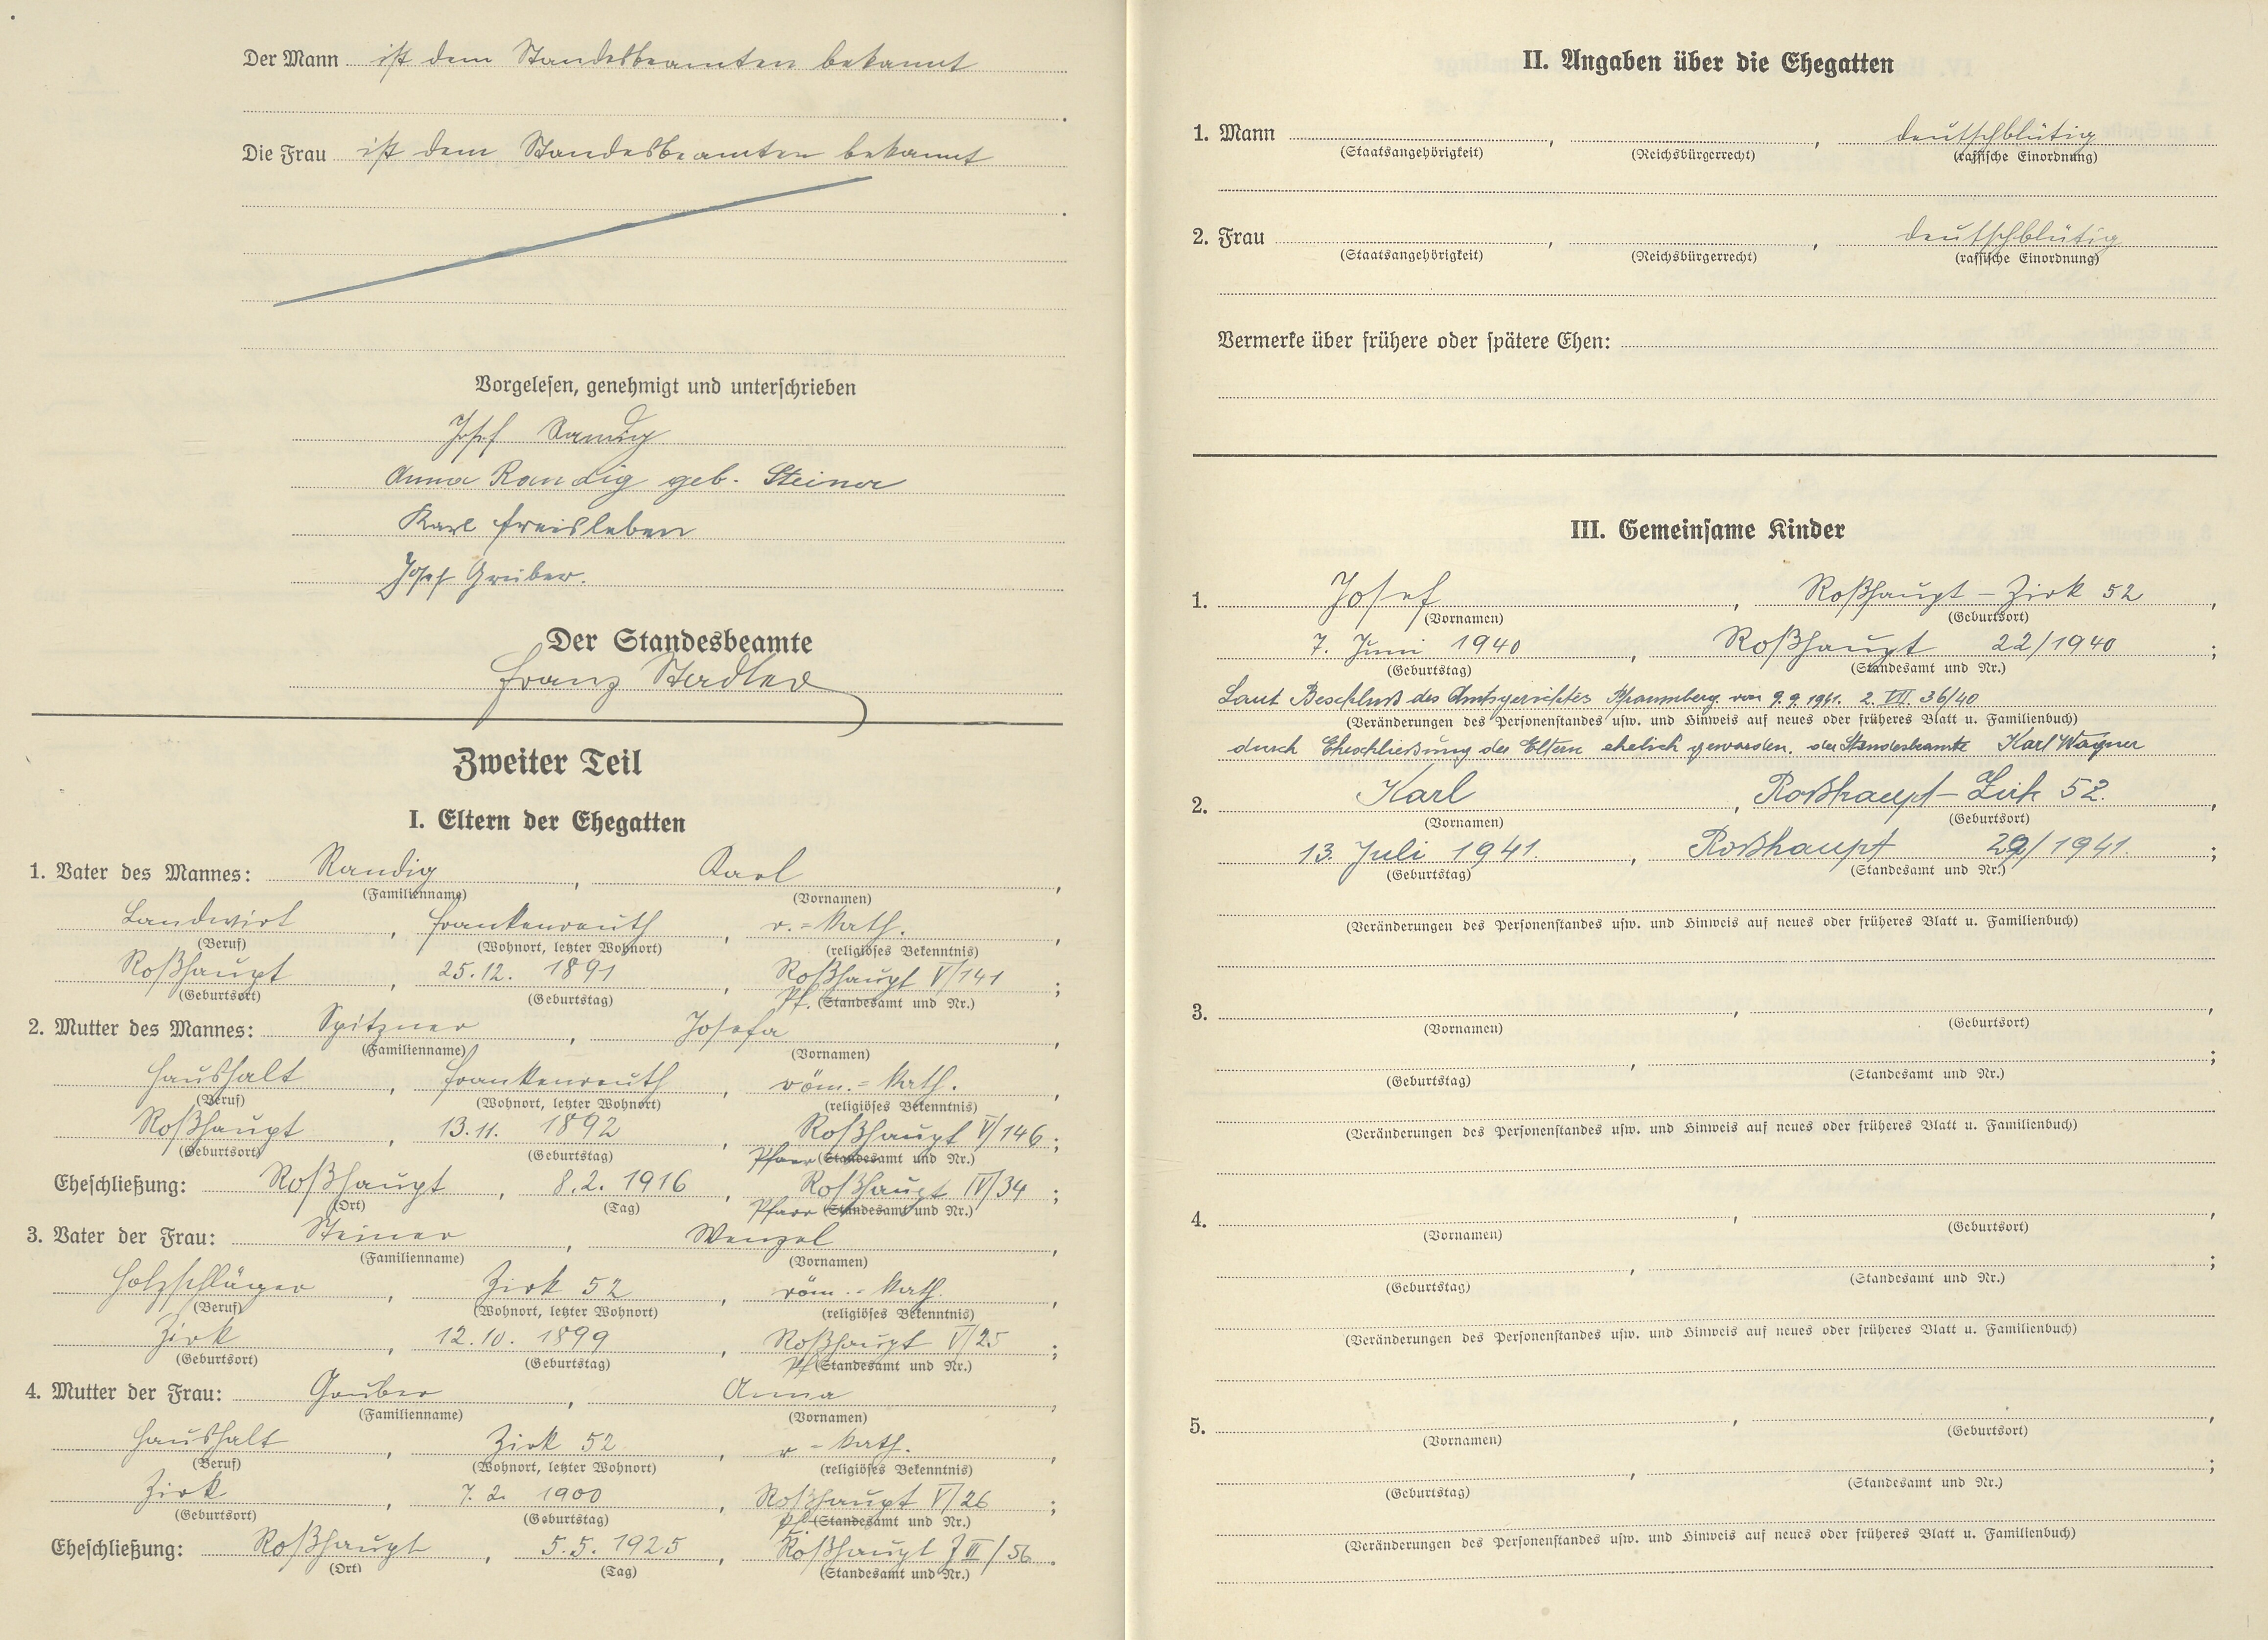 Der Mann ist dem Standesbeamten bekannt
Die Frau ist dem Standesbeamten bekannt
Vorgelesen, genehmigt und unterschrieben
Josef Randig
Anna Randig geb. Steiner
Karl Freisleben
Josef Gruber.
Der Standesbeamte
Franz Stadler
Zweiter Teil
I. Eltern der Ehegatten
1. Vater des Mannes: Randig, Karl,
(Familienname) (Vornamen)
Landwirt, Frankenreuth, r.=kath.,
(Beruf) (Wohnort, letzter Wohnort) (religiöses Bekenntnis)
Roßhaupt, 25.12. 1891, Roßhaupt V/141;
(Geburtsort) (Geburtstag) Pf. (Standesamt und Nr.)
2. Mutter des Mannes: Spitzner, Josefa,
(Familienname) (Vornamen)
Haushalt, Frankenreuth, röm.=kath.,
(Beruf) (Wohnort, letzter Wohnort) (religiöses Bekenntnis)
Roßhaupt, 13.11. 1892, Roßhaupt V/146;
(Geburtsort) (Geburtstag) Pfarr (Standesamt und Nr.)
Eheschließung: Roßhaupt, 8.2. 1916, Roßhaupt IV/34;
(Ort) (Tag) Pfarr (Standesamt und Nr.)
3. Vater der Frau: Steiner, Wenzel,
(Familienname) (Vornamen)
Holzschläger, Zirk 52, röm.=kath.,
(Beruf) (Wohnort, letzter Wohnort) (religiöses Bekenntnis)
Zirk, 12.10. 1899, Roßhaupt V/25;
(Geburtsort) (Geburtstag) Pf (Standesamt und Nr.)
4. Mutter der Frau: Gruber, Anna,
(Familienname) (Vornamen)
Haushalt, Zirk 52, r=kath.,
(Beruf) (Wohnort, letzter Wohnort) (religiöses Bekenntnis)
Zirk, 7.2. 1900, Roßhaupt V/26;
(Geburtsort) (Geburtstag) Pf. (Standesamt und Nr.)
Eheschließung: Roßhaupt, 5.5. 1925, Roßhaupt III/56.
(Ort) (Tag) (Standesamt und Nr.)
II. Angaben über die Ehegatten
1. Mann , , deutschblütig
(Staatsangehörigkeit) (Reichsbürgerrecht) (rassische Einordnung)
2. Frau , , deutschblütig
(Staatsangehörigkeit) (Reichsbürgerrecht) (rassische Einordnung)
Vermerke über frühere oder spätere Ehen:
III. Gemeinsame Kinder
1. Josef, Roßhaupt – Zirk 52,
(Vornamen) (Geburtsort)
7. Juni 1940, Roßhaupt 22/1940;
(Geburtstag) (Standesamt und Nr.)
Laut Beschluß des Amtsgerichtes Pfraumberg von 9.9.1941. 2. VII. 36/40
(Veränderungen des Personenstandes usw. und Hinweis auf neues oder früheres Blatt u. Familienbuch)
durch Eheschließung der Eltern ehelich geworden. der Standesbeamte Karl Wagner
2. Karl, Roßhaupt – Zirk 52.,
(Vornamen) (Geburtsort)
13. Juli 1941., Roßhaupt 29/1941.;
(Geburtstag) (Standesamt und Nr.)
(Veränderungen des Personenstandes usw. und Hinweis auf neues oder früheres Blatt u. Familienbuch)
3. , ,
(Vornamen) (Geburtsort)
, ;
(Geburtstag) (Standesamt und Nr.)
(Veränderungen des Personenstandes usw. und Hinweis auf neues oder früheres Blatt u. Familienbuch)
4. , ,
(Vornamen) (Geburtsort)
, ;
(Geburtstag) (Standesamt und Nr.)
(Veränderungen des Personenstandes usw. und Hinweis auf neues oder früheres Blatt u. Familienbuch)
5. , ,
(Vornamen) (Geburtsort)
, ;
(Geburtstag) (Standesamt und Nr.)
(Veränderungen des Personenstandes usw. und Hinweis auf neues oder früheres Blatt u. Familienbuch)